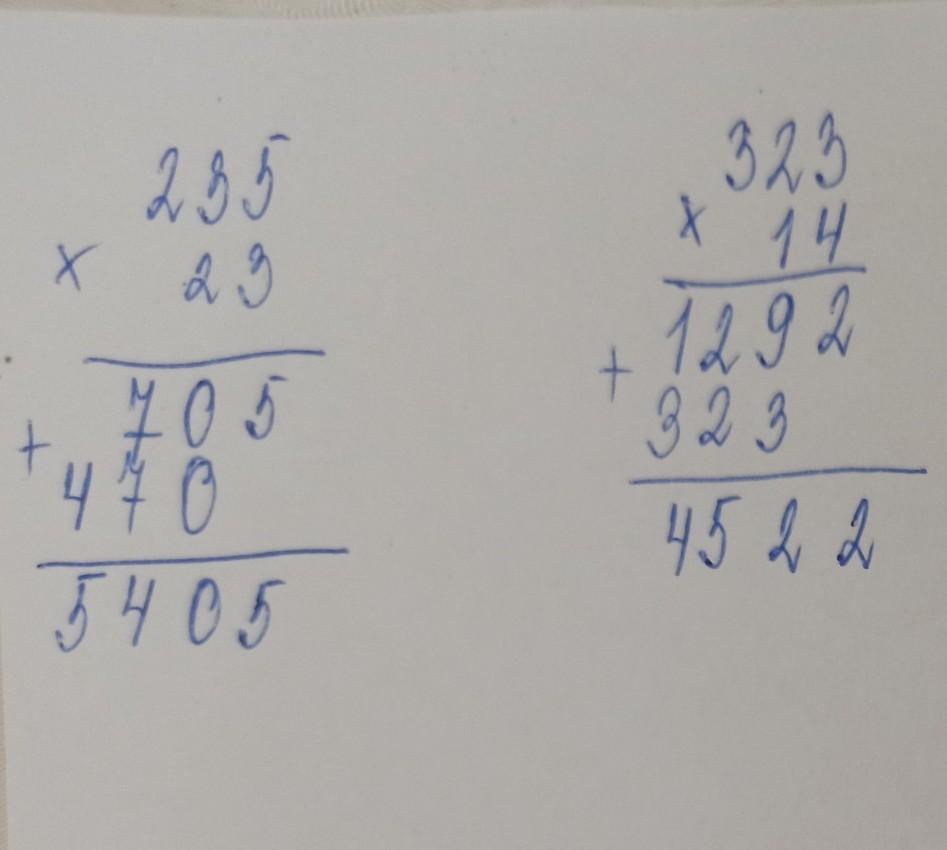 235
× 23
705
+ 470
5405
323
× 14
1292
+ 323
4522